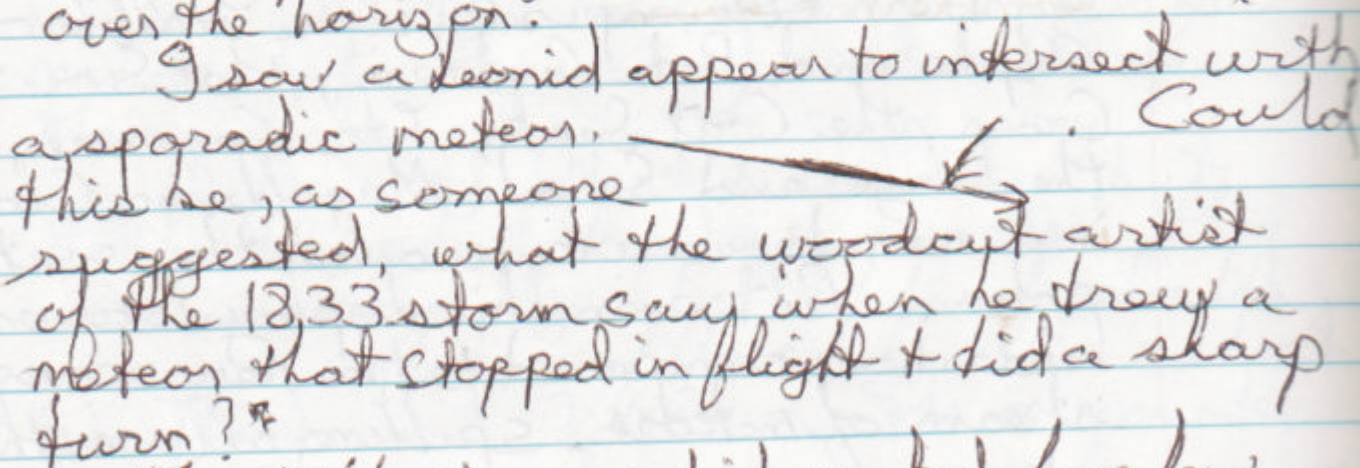 over the horizon.
I saw a Leonid appear to intersect with
a sporadic meteor. . Could
this be, as someone
suggested, what the woodcut artist
of the 1833 storm saw when he drew a
meteor that stopped in flight + did a sharp
turn?*